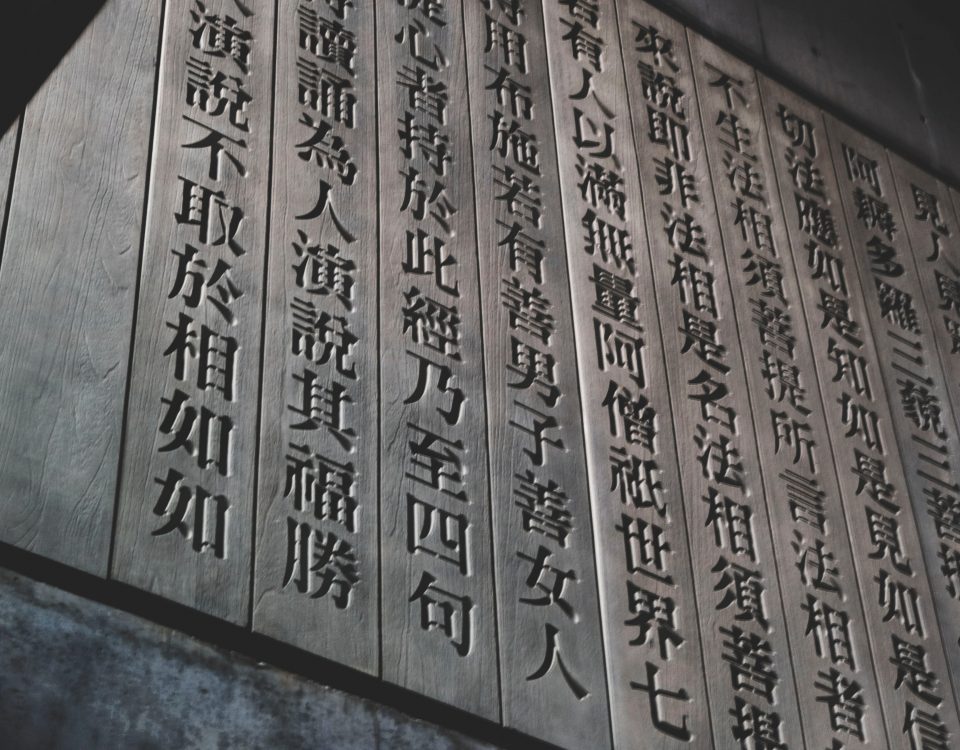 見人見
阿耨多羅三藐三菩提
切法應如是知如是見如是信
不生法相須菩提所言法相者
來說即非法相是名法相須菩提
若有人以滿無量阿僧祇世界七
持用布施若有善男子善女人
心者持於此經乃至四句
持讀誦為人演說其福勝
演說不取於相如如